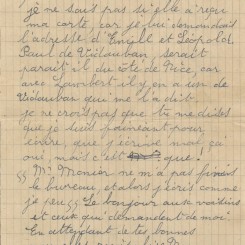 je ne sais pas si elle a reçu
ma carte, car je lui demandais
l'adresse d'Emile et Léopold.
Paul de Vidauban, serait
parait il du côté de Nice, car
avec Lambert il y en a un de
Vidauban qui me l'a dit.
je ne crois pas que tu me dises
que je suis fainéant pour
écrire, que j'écrive mal, ça
oui, mais c'est que
Mr Monier ne m'a pas fourni
le bureau, et alors j'écris comme
je peu Le bonjour aux voisins
et ceux qui demandent de moi.
En attendant de tes bonnes